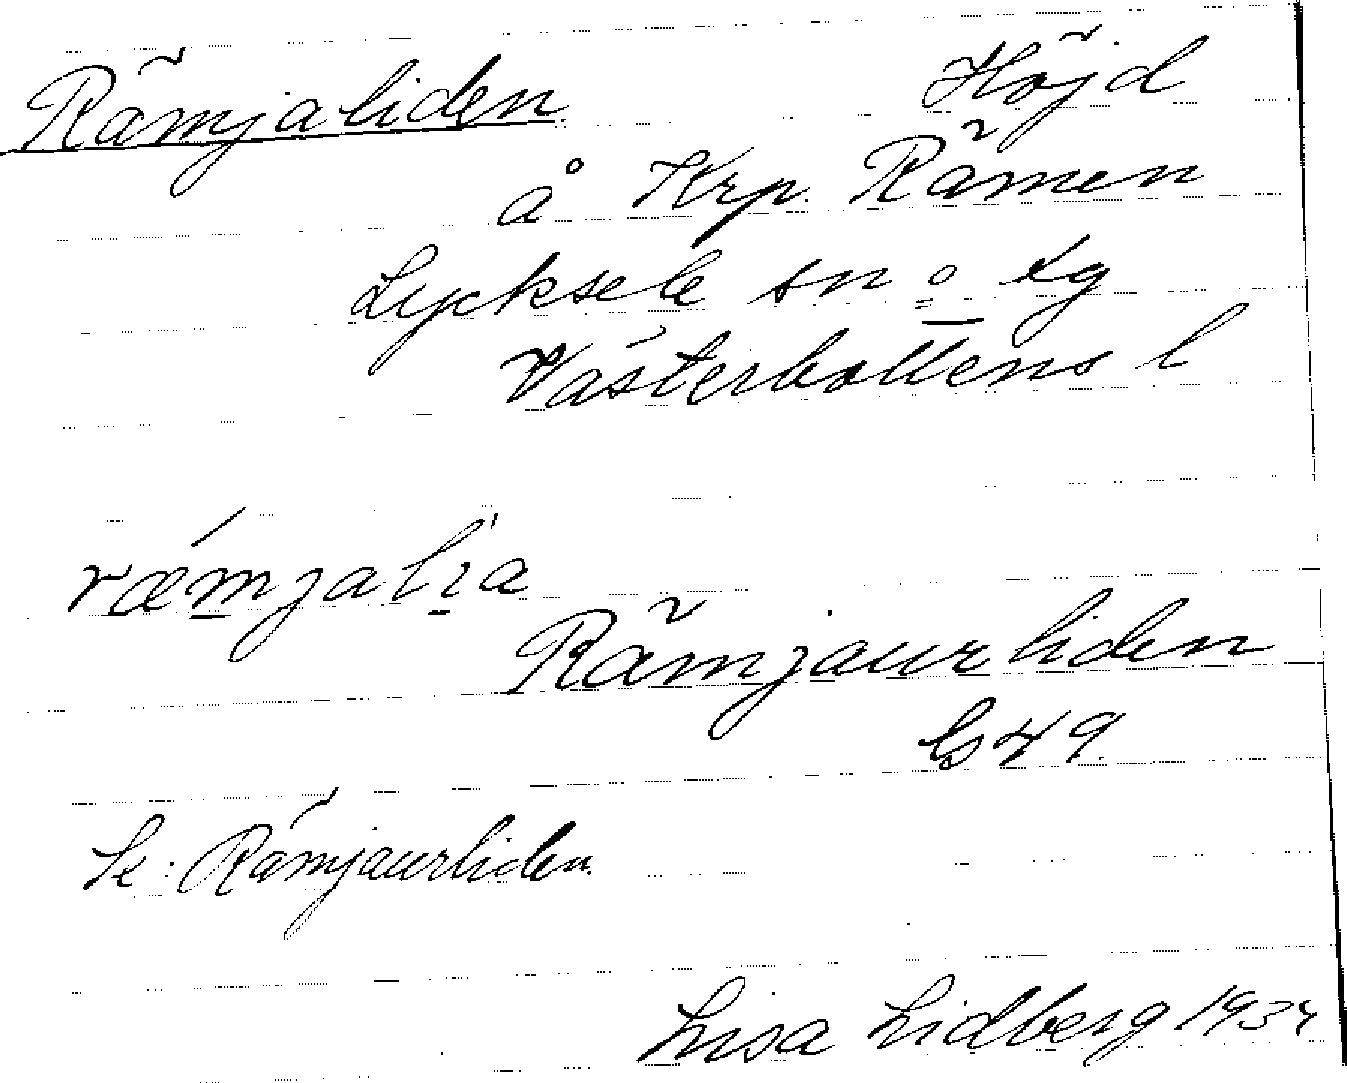 Rämjaliden Höjd
å Krp. Rämen
Lycksele sn o lg
Västerbottens l
ræ´mjalı̠'a
Rämjaurliden
GS 49.
Se: Rämjaurliden
Lisa Lidberg 1934